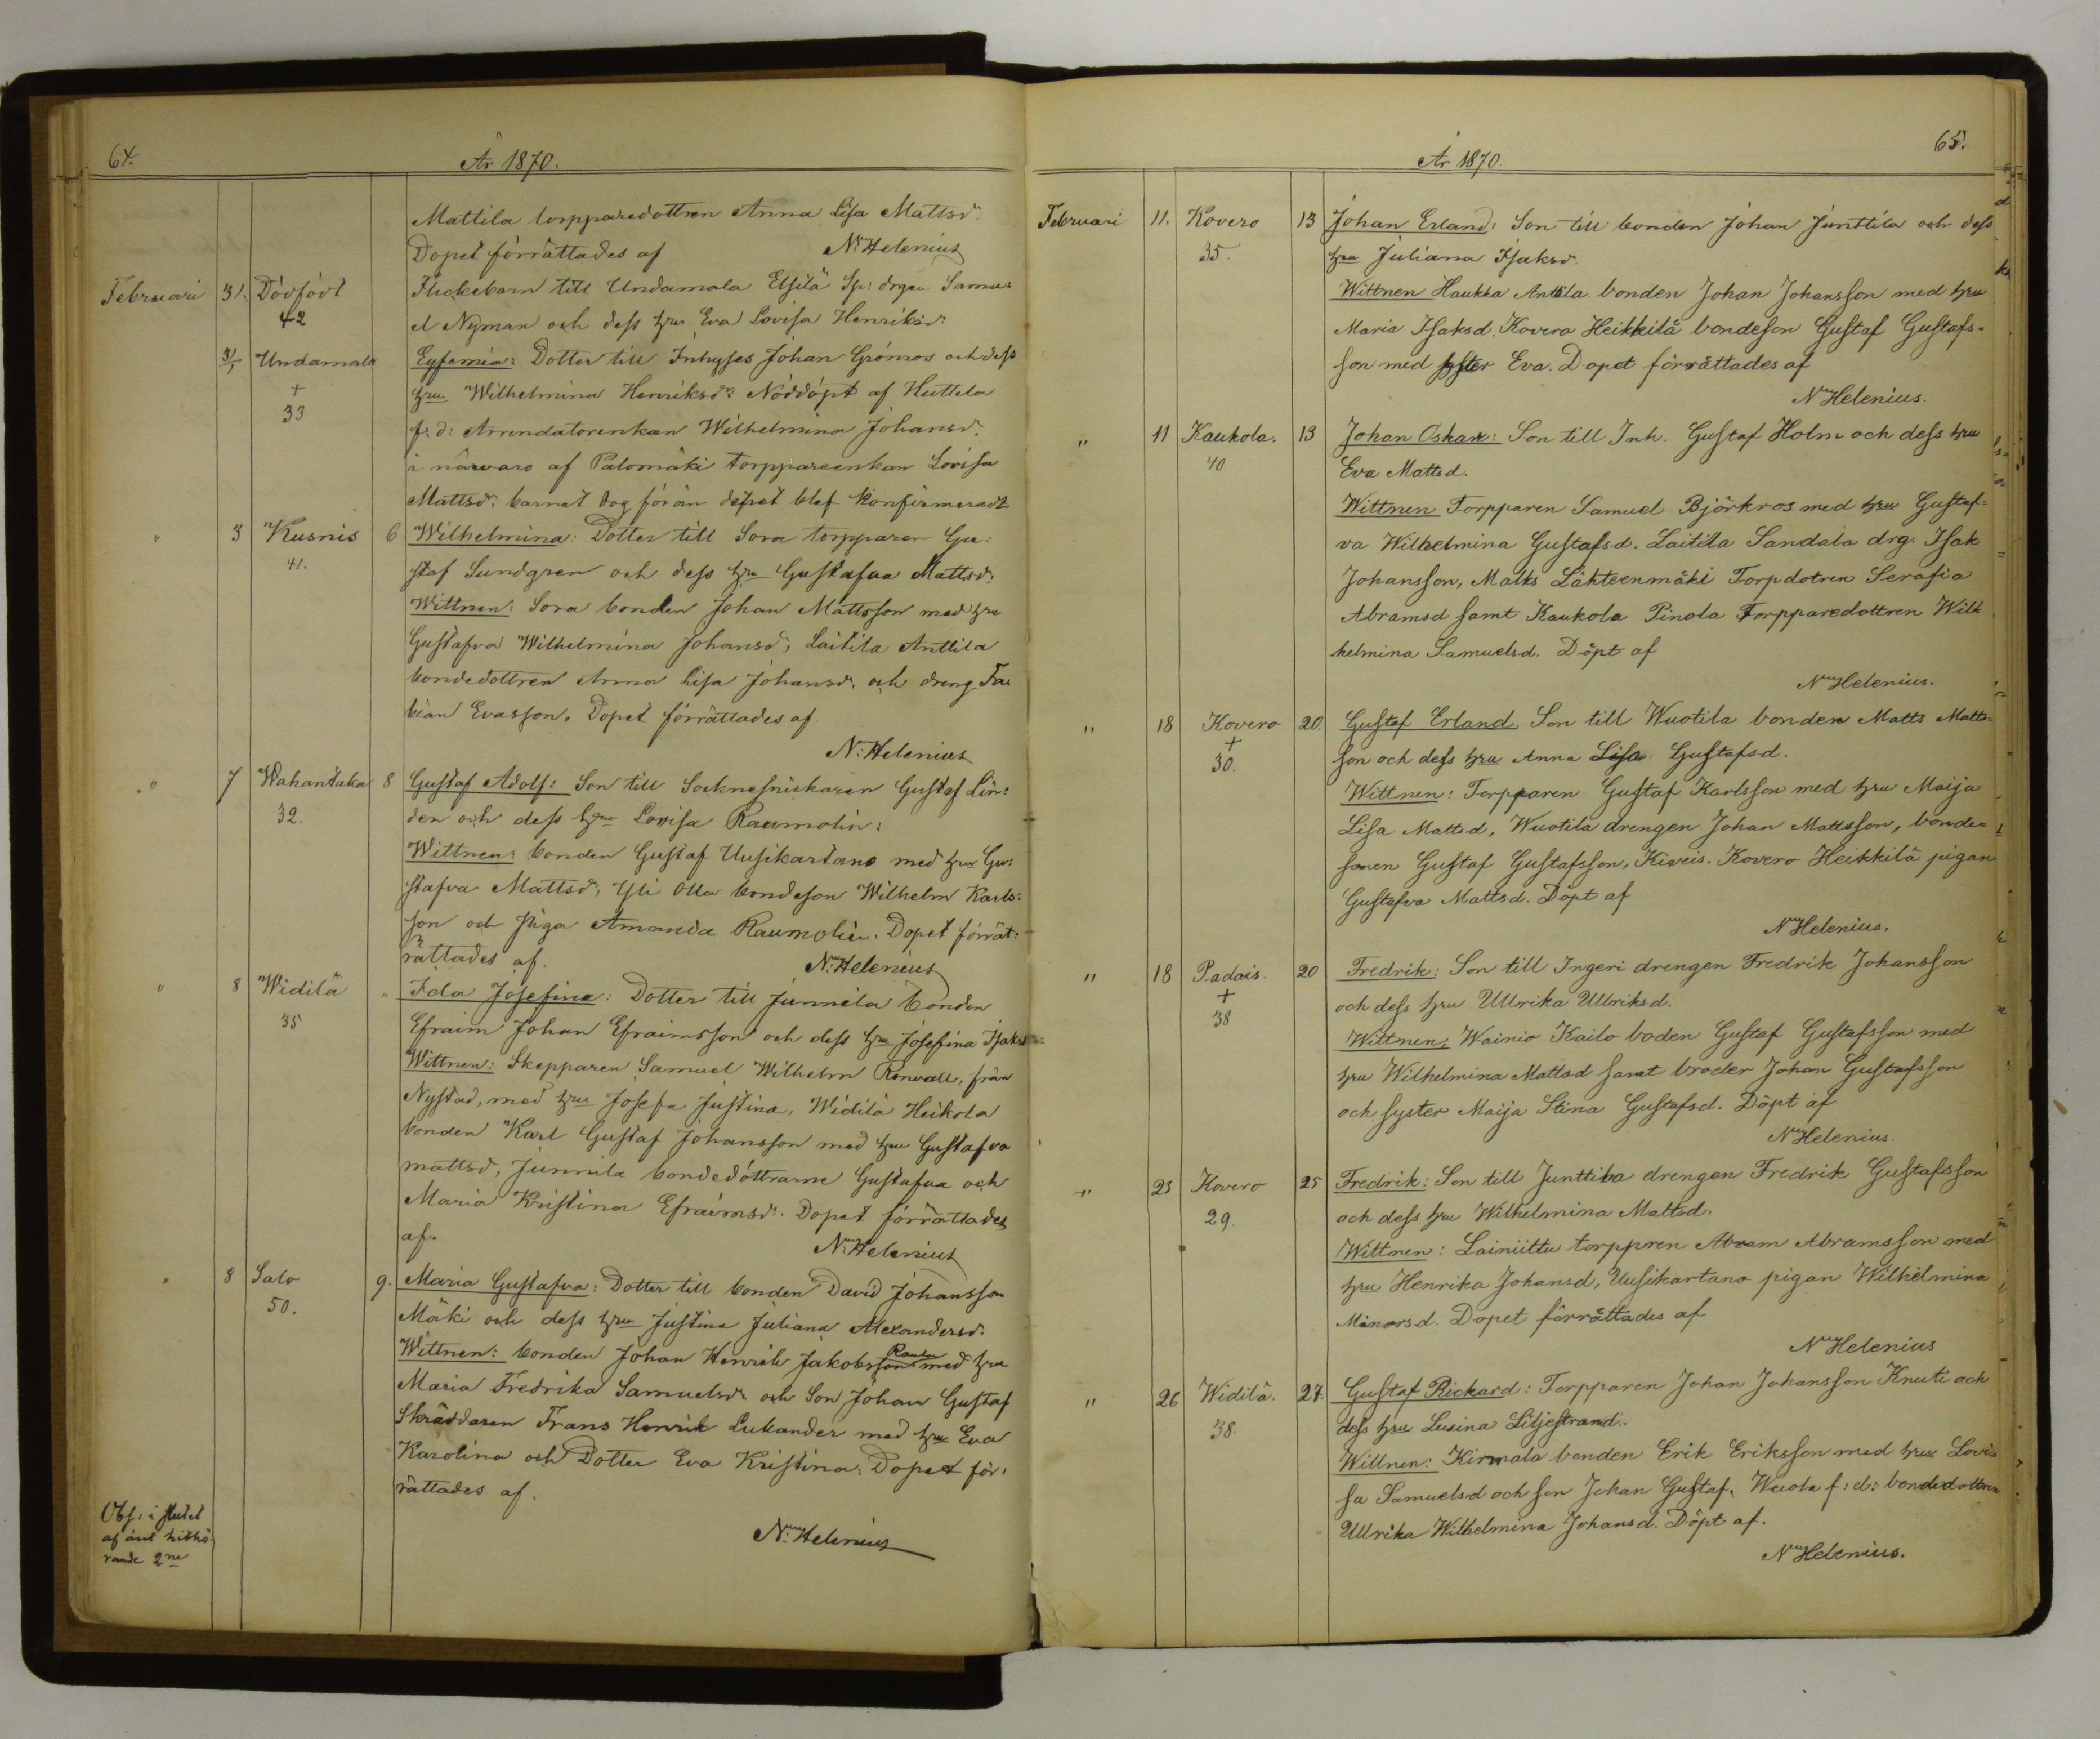 64.
År 1870.
Mattila torpparedottren Anna Lisa Mattsd.
Dopet förrättades af N. Helenius
Februari 31. Dödfödt Flickebarn till Undamala Elsilä Sp: drgen Samu
42 el Nyman och dess hru Eva Lovisa Henriksd.
31/1 Undamala Eufemia: Dotter till Inhyses Johan Grönros och dess
+ hru Wilhelmina Henriksd: Nöddöpt af Huttila
33 f: d: Arrendatorenkan Wilhelmina Johansd.
i närvaro af Palomäki torppareenkan Lovisa
Mattsd. barnet dog förän döpet blef konfirmeradt
" 3 Kusnis 6 Wilhelmina: Dotter till Sora torpparen Gu:
41. staf Sundgren och dess hru Gustafva Mattsd.
Wittnen: Sora bonden Johan Mattsson med hru
Gustafva Wilhelmina Johansd, Laitila Anttila
bondedottren Anna Lisa Johansd. och dreng Fa
bian Evasson. Dopet förrättades af
N. Helenius
" 7 Wahantaka 8 Gustaf Adolf: Son till Socknesnickaren Gustaf Lin:
32. den och dess hru Lovisa Raumolin:
Wittnen: bonden Gustaf Uusikartano med hru Gu:
stafva Mattsd, Yli Olla bondeson Wilhelm Karls:
son och Piga Amanda Raumolin. Dopet förrät:
rättades af. N. Helenius
" 8 Widilä " Ida Josefina: Dotter till Junnila bonden
35 Efraim Johan Efraimsson och dess hru Josefina Isaksd
Wittnen: Skepparen Samuel Wilhelm Renvall, från
Nystad, med hru Josefa Justina, Widilä Heikola
bonden Karl Gustaf Johansson med hru Gustafva
mattsd, Junnila bondedöttrarne Gustafva och
Maria Kristina Efraimsd. Dopet förrättades
af. N. Helenius
" 8 Salo 9. Maria Gustafva: Dotter till bonden David Johansson
50. Mäki och dess hru Justina Juliana Alexandersd.
Wittnen: bonden Johan Henrik Jakobsson Rautu med hru
Maria Fredrika Samuelsd. och Son Johan Gustaf
Skräddaren Frans Henrik Lukander med hru Eva
Karolina och Dotter Eva Kristina. Dopet för:
rättades af.
N. Helenius
Obs: i slutet
af året hithö
rande 2ne
65.
År 1870.
Februari 11. Kovero 13 Johan Erland: Son till bonden Johan Junttila och dess
35. hru Juliana Isaksd.
Wittnen Haukka Anttila bonden Johan Johansson med hru
Maria Isaksd. Kovero Heikkilä bondeson Gustaf Gustafs-
son med syster Eva. Dopet förrättades af
N Helenius.
" 11 Kaukola. 13 Johan Oskar: Son till Inh. Gustaf Holm och dess hru
40 Eva Mattsd.
Wittnen Torpparen Samuel Björkros med hru Gustaf=
va Wilhelmina Gustafsd. Laitila Sandala drg. Isak
Johansson, Malks Lähteenmäki Torpdotren Serafia
Abramsd samt Kaukola Pinola Torpparedottren Wilh
helmina Samuelsd. Döpt af
N Helenius.
" 18 Kovero 20. Gustaf Erland Son till Wuotila bonden Matts Matts-
+ son och dess hru Anna Lisa Gustafsd.
30. Wittnen: Torpparen Gustaf Karlsson med hru Maija
Lisa Mattsd, Wuotila drengen Johan Mattsson, bonde=
sonen Gustaf Gustafsson, Kiveis. Kovero Heikkilä pigan
Gustafva Mattsd. Döpt af
N Helenius.
" 18 Padais. 20 Fredrik: Son till Ingeri drengen Fredrik Johansson
+ och dess hru Ullrika Ullriksd.
38 Wittnen: Wainio Kailo boden Gustaf Gustafsson med
hru Wilhelmina Mattsd samt broder Johan Gustafsson
och syster Maija Stina Gustafsd. Döpt af
N Helenius.
" 23 Kovero 25 Fredrik: Son till Junttila drengen Fredrik Gustafsson
29. och dess hru Wilhelmina Mattsd.
Wittnen: Lainiittu torppren Abram Abramsson med
hru Henrika Johansd, Uusikartano pigan Wilhelmina
Minorsd. Dopet förrättades af
N Helenius
" 26 Widilä. 27. Gustaf Rickard: Torpparen Johan Johansson Knuti och
38. dess hru Lusina Liljestrand.
Wittnen: Kirmala bonden Erik Eriksson med hru Lovi
sa Samuelsd och son Johan Gustaf. Wuola f: d: bondedottren
Ullrika Wilhelmina Johansd. Döpt af.
N Helenius.